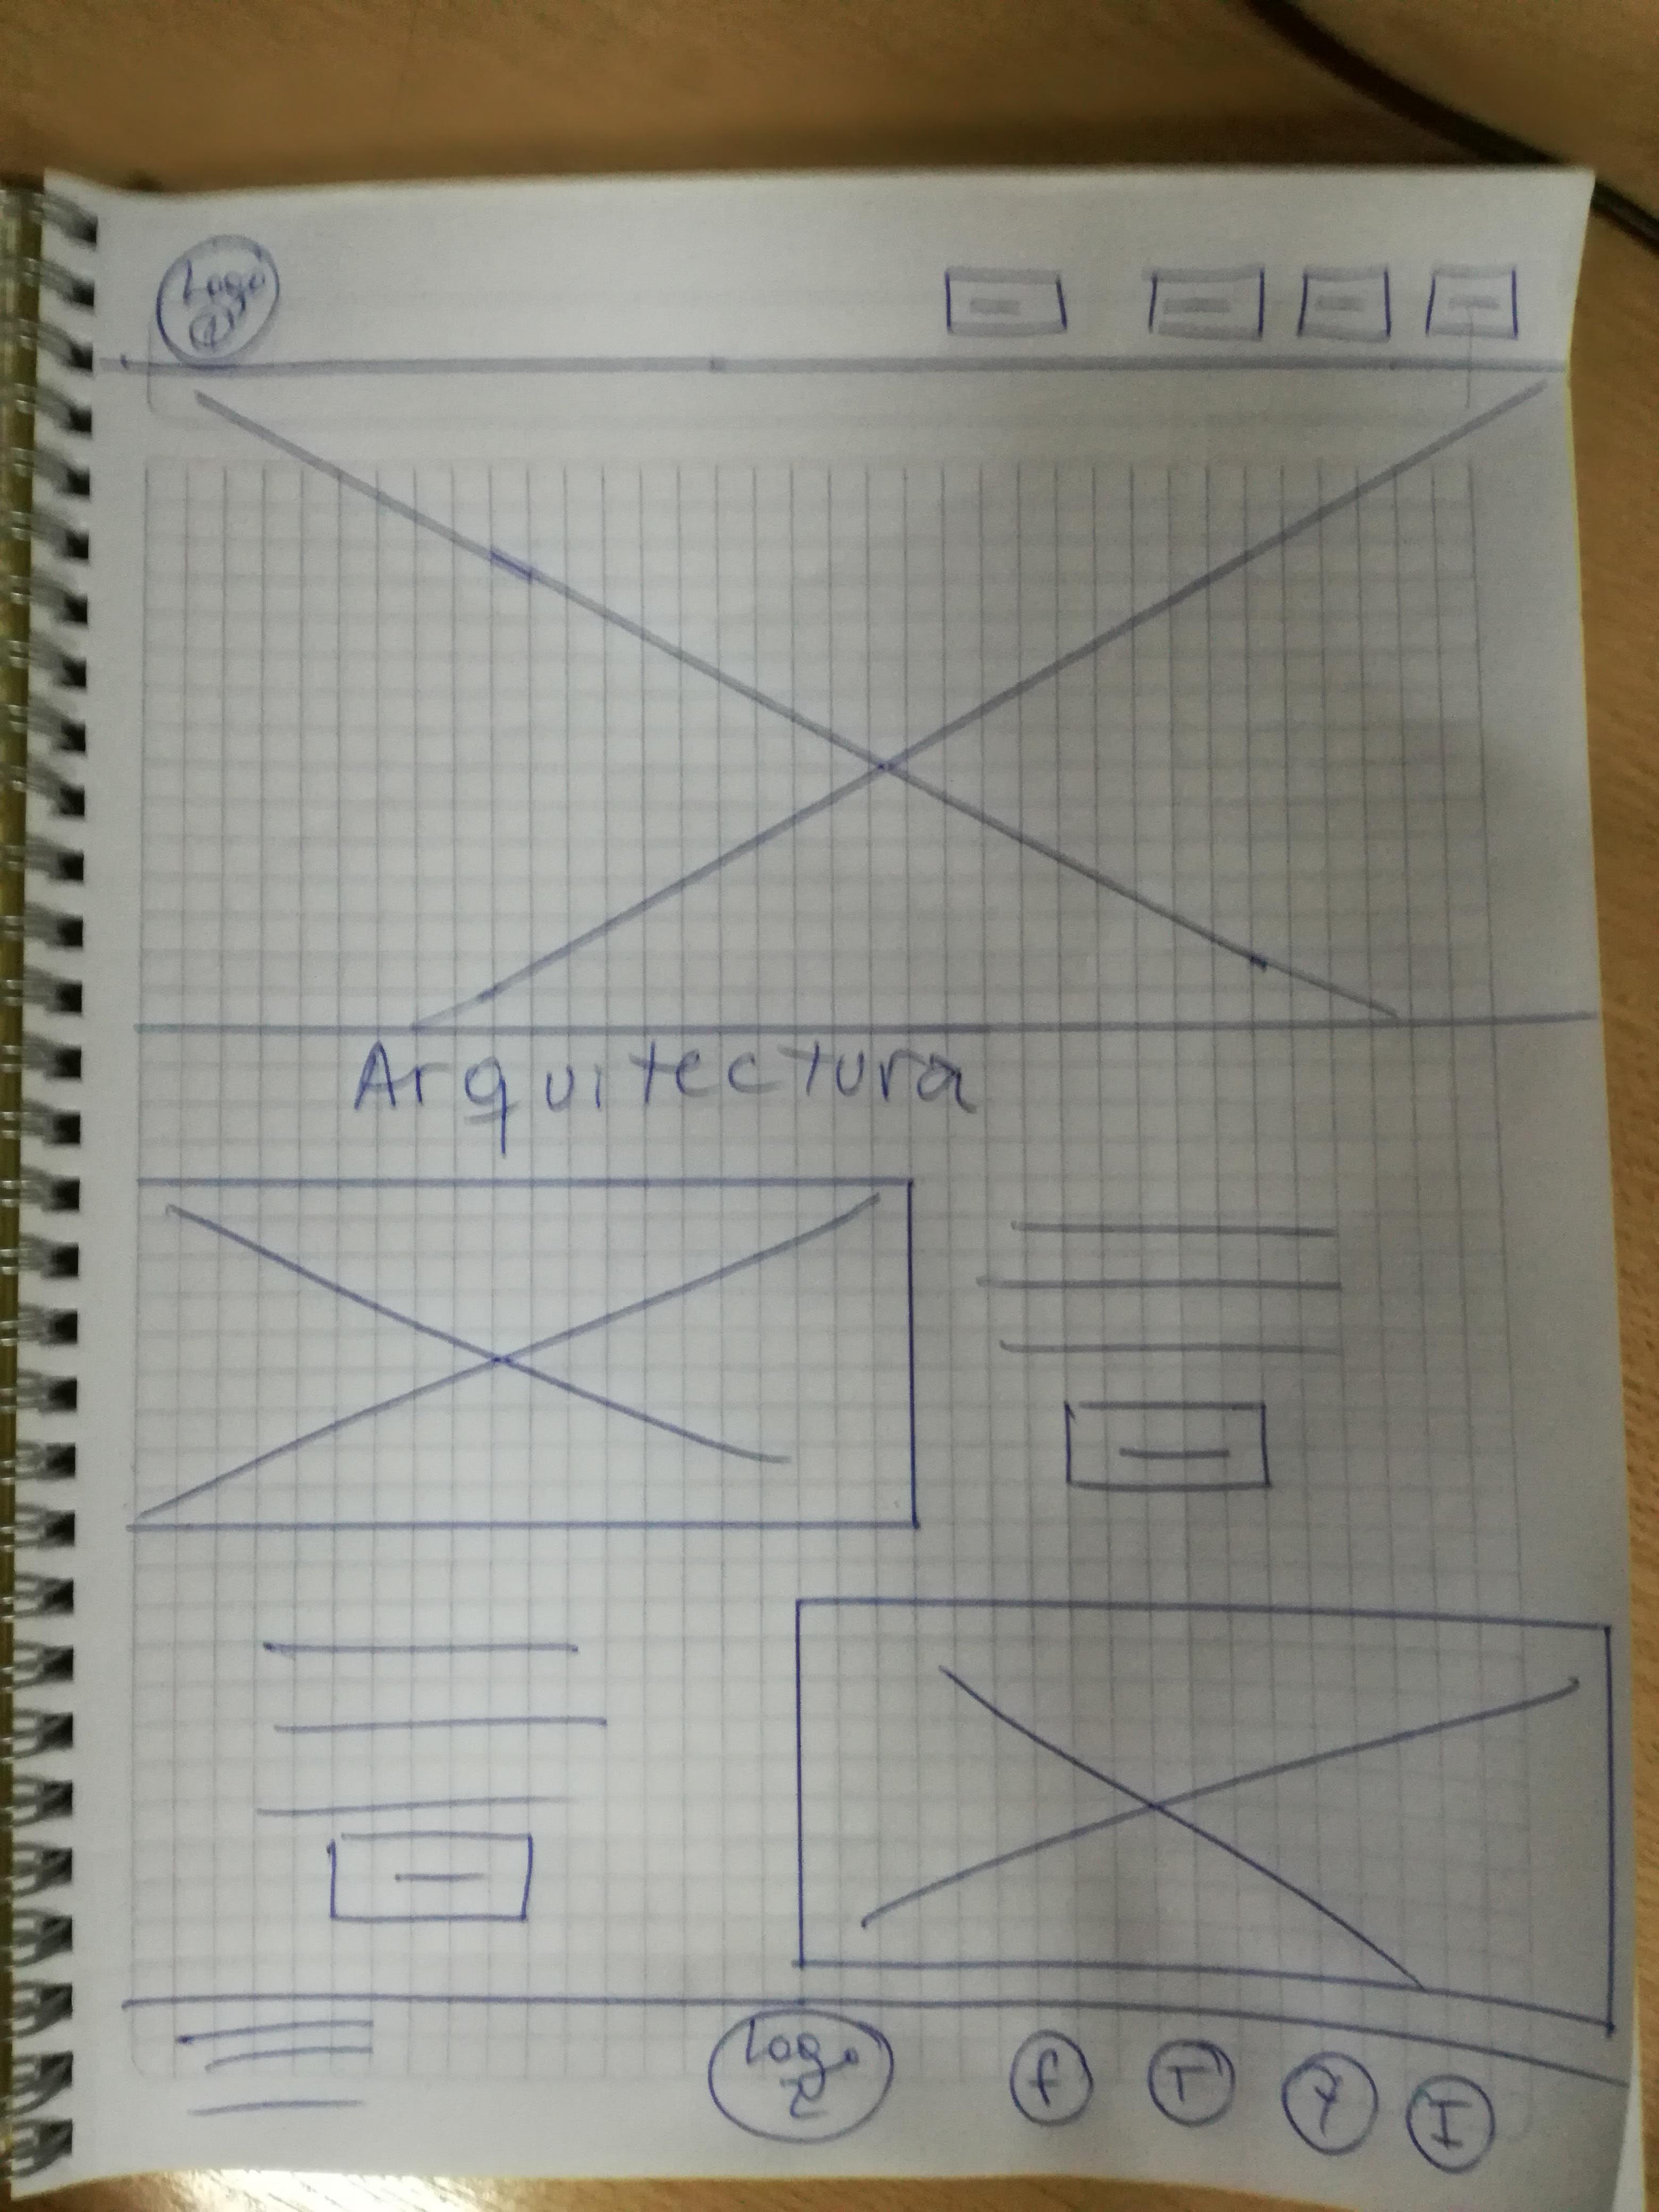 Logo
1
Arquitectura
Logo
2
f T Y I